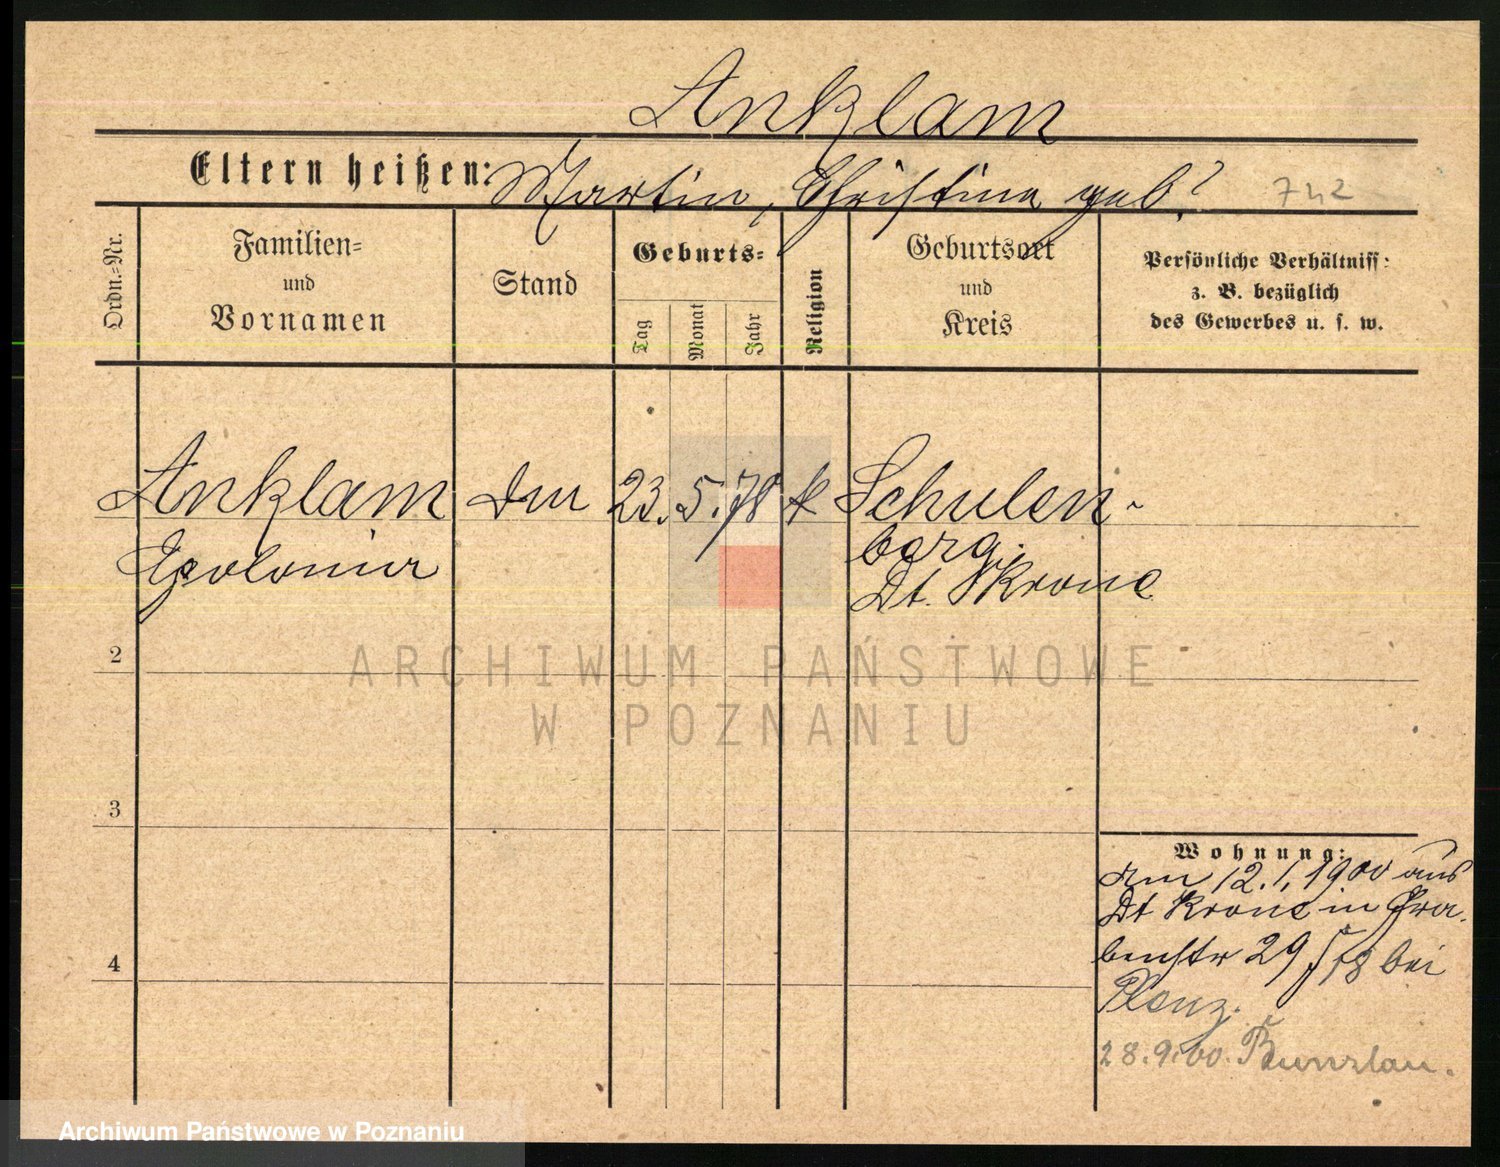 Anklam
Eltern heißen: Martin, Christina geb.?
742
Ordn.-Nr.
Familien-
und
Vornamen
Stand
Geburts-
Tag
Monat
Jahr
Religion
Geburtsort
und
Kreis
Persönliche Verhältniss:
z. B. bezüglich
des Gewerbes u. s. w.
Anklam
23. 5. 78 k Schulen-
berg.
Dt. Krone
2
3
4
ARCHIWUM PAŃSTWOWE
W POZNANIU
Wohnung:
am 12.1.1900 aus
Dt Krone in Gra-
benstr 29 bei
Plenz.
28.9.00. Bunzlau.
Archiwum Państwowe w Poznaniu